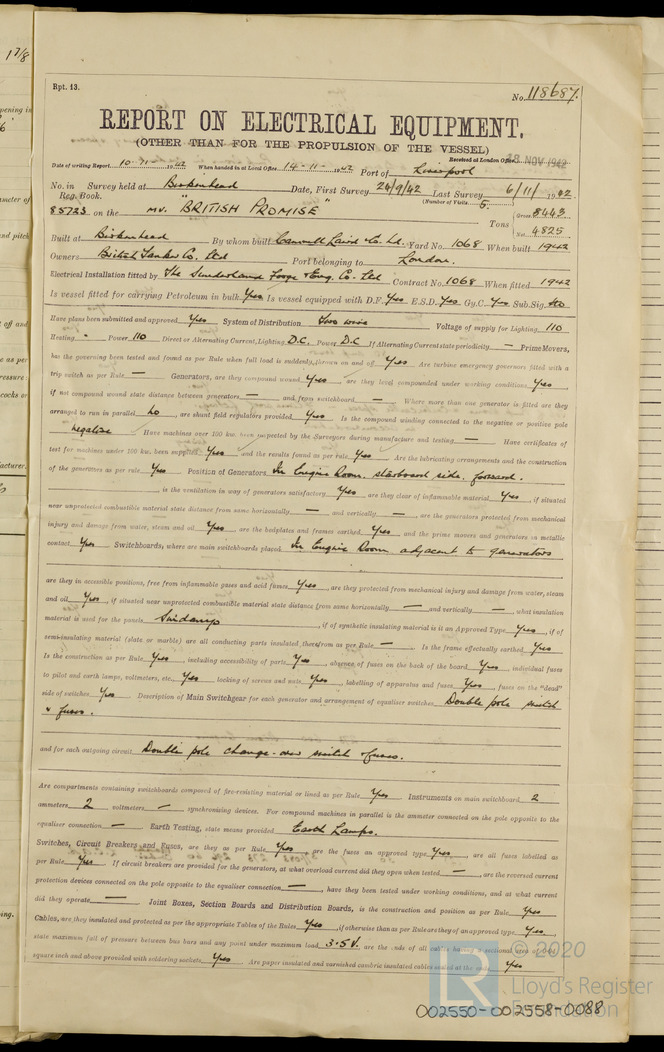 1 7/8
Rpt. 13.
No. 118687.
REPORT ON ELECTRICAL EQUIPMENT.
(OTHER THAN FOR THE PROPULSION OF THE VESSEL)
Received at London Office 18 NOV 1942
Date of writing Report 10-11- 1942 When handed in at Local Office 14-11- 1942 Port of Liverpool
No. in Survey held at Birkenhead Date, First Survey 24/9/42 Last Survey 6/11/ 1942
Reg. Book. (Number of Visits 5.
85723 on the M.V. "BRITISH PROMISE" Tons Gross 8443 Net 4825
Built at Birkenhead By whom built Cammell Laird & Co. Ld. Yard No. 1068 When built 1942
Owners British Tanker Co. Ltd Port belonging to London.
Electrical Installation fitted by The Sunderland Forge & Eng. Co. Ltd Contract No. 1068 When fitted 1942
Is vessel fitted for carrying Petroleum in bulk Yes Is vessel equipped with D.F. Yes E.S.D. Yes Gy.C. Yes Sub.Sig. No
Have plans been submitted and approved Yes System of Distribution Two wire Voltage of supply for Lighting 110
Heating " Power 110 Direct or Alternating Current, Lighting D.C. Power D.C If Alternating Current state periodicity — Prime Movers,
has the governing been tested and found as per Rule when full load is suddenly thrown on and off Yes Are turbine emergency governors fitted with a
trip switch as per Rule — Generators, are they compound wound Yes are they level compounded under working conditions Yes,
if not compound wound state distance between generators — and from switchboard — Where more than one generator is fitted are they
arranged to run in parallel No, are shunt field regulators provided Yes Is the compound winding connected to the negative or positive pole
Negative Have machines over 100 kw. been inspected by the Surveyors during manufacture and testing — Have certificates of
test for machines under 100 kw. been supplied Yes and the results found as per rule Yes Are the lubricating arrangements and the construction
of the generators as per rule Yes Position of Generators In Engine Room. starboard side. forward.
is the ventilation in way of generators satisfactory Yes are they clear of inflammable material Yes, if situated
near unprotected combustible material state distance from same horizontally — and vertically —, are the generators protected from mechanical
injury and damage from water, steam and oil Yes are the bedplates and frames earthed Yes and the prime movers and generators in metallic
contact Yes Switchboards, where are main switchboards placed In Engine Room adjacent to generators
are they in accessible positions, free from inflammable gases and acid fumes Yes, are they protected from mechanical injury and damage from water, steam
and oil Yes, if situated near unprotected combustible material state distance from same horizontally — and vertically —, what insulation
material is used for the panels Sindanyo, if of synthetic insulating material is it an Approved Type Yes, if of
semi-insulating material (slate or marble) are all conducting parts insulated therefrom as per Rule — Is the frame effectually earthed Yes
Is the construction as per Rule Yes, including accessibility of parts Yes absence of fuses on the back of the board Yes, individual fuses
to pilot and earth lamps, voltmeters, etc. Yes locking of screws and nuts Yes labelling of apparatus and fuses Yes, fuses on the "dead"
side of switches Yes Description of Main Switchgear for each generator and arrangement of equaliser switches Double pole switch
& fuses.
and for each outgoing circuit Double pole change-over switch & fuses.
Are compartments containing switchboards composed of fire-resisting material or lined as per Rule Yes Instruments on main switchboard 2
ammeters 2 voltmeters — synchronising devices. For compound machines in parallel is the ammeter connected to the pole opposite to the
equaliser connection — Earth Testing, state means provided Earth Lamps.
Switches, Circuit Breakers and Fuses, are they as per Rule Yes, are the fuses an approved type Yes, are all fuses labelled as
per Rule Yes If circuit breakers are provided for the generators, at what overload current did they open when tested —, are the reversed current
protection devices connected on the pole opposite to the equaliser connection —, have they been tested under working conditions, and at what current
did they operate — Joint Boxes, Section Boards and Distribution Boards, is the construction and position as per Rule Yes
Cables, are they insulated and protected as per the appropriate Tables of the Rules Yes, if otherwise than as per Rule are they of an approved type Yes,
state maximum fall of pressure between bus bars and any point under maximum load 3.5 V. are the ends of all cables having a sectional area of 0.01
square inch and above provided with soldering sockets Yes Are paper insulated and varnished cambric insulated cables sealed at the ends Yes
© 2020
LR
Lloyd's Register
Foundation
002550-002558-0088